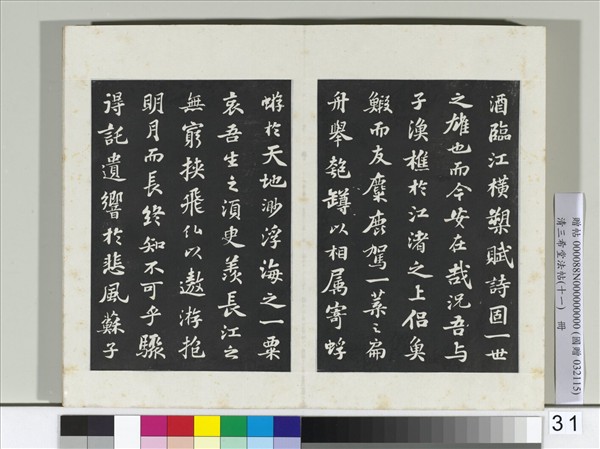 酒臨江橫槊賦詩固一世
之雄也而今安在哉況吾與
子漁樵於江渚之上侶魚
鰕而友麋鹿駕一葉之扁
舟舉匏罇以相属寄蜉
蝣於天地渺浮海之一粟
哀吾生之須臾羨長江之
無窮挾飛仙以遨游抱
明月而長終知不可乎驟
得託遺響於悲風蘇子
贈帖 000088N000000000 (國贈 032115)
清三希堂法帖(十一) 冊
31